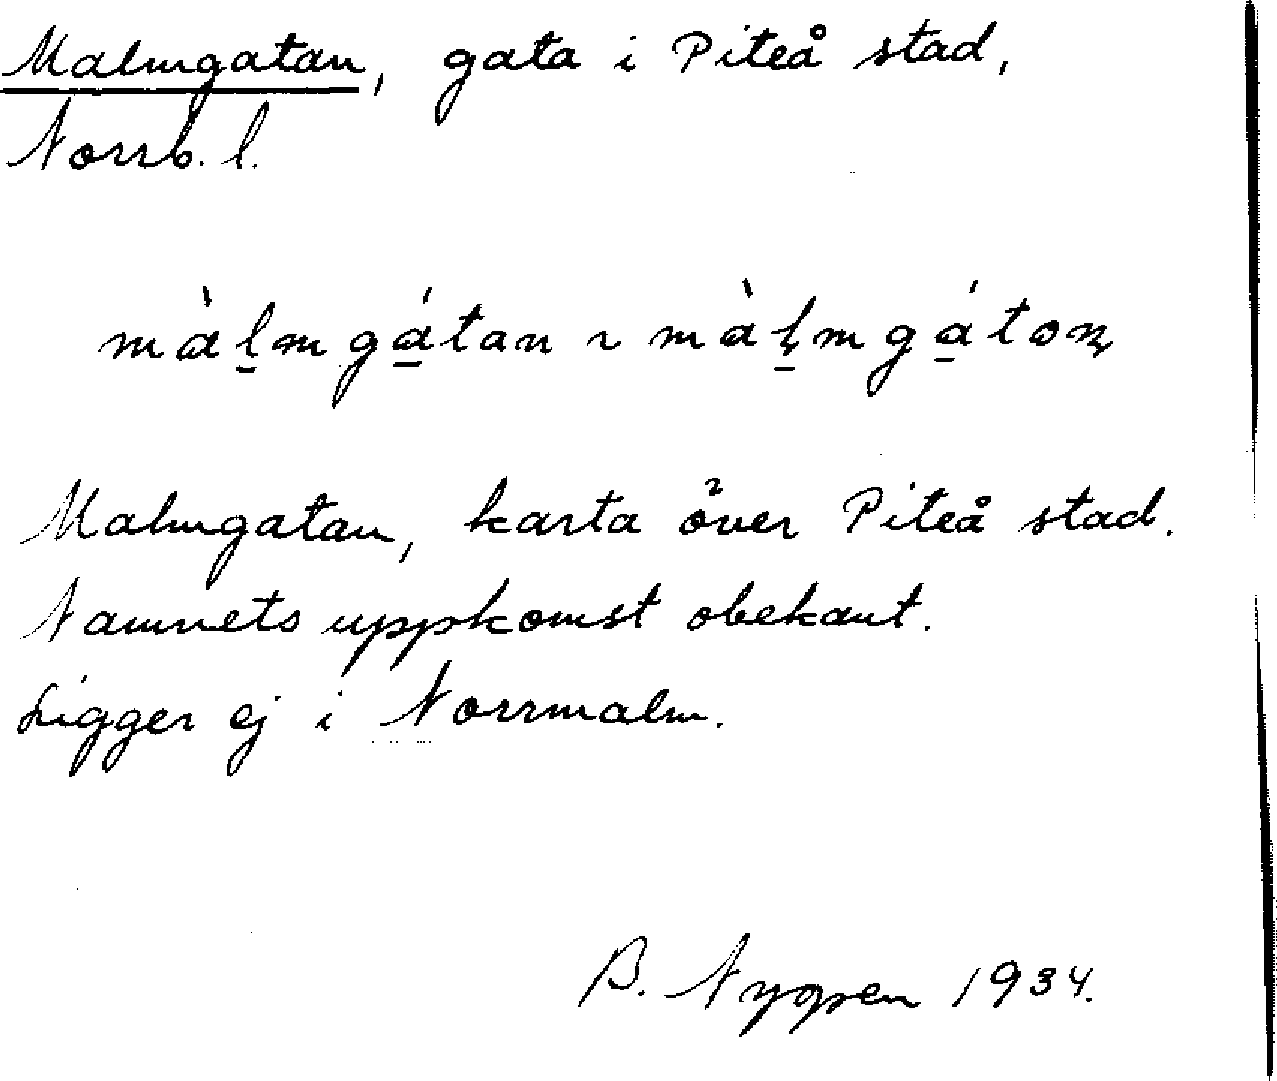 Malmgatan, gata i Piteå stad,
Norrb. l.
màl̠mgá̠tan ~ màl̠mgá̠ton
Malmgatan, karta över Piteå stad.
Namnets uppkomst obekant.
Ligger ej i Norrmalm.
B. Nygren 1934.